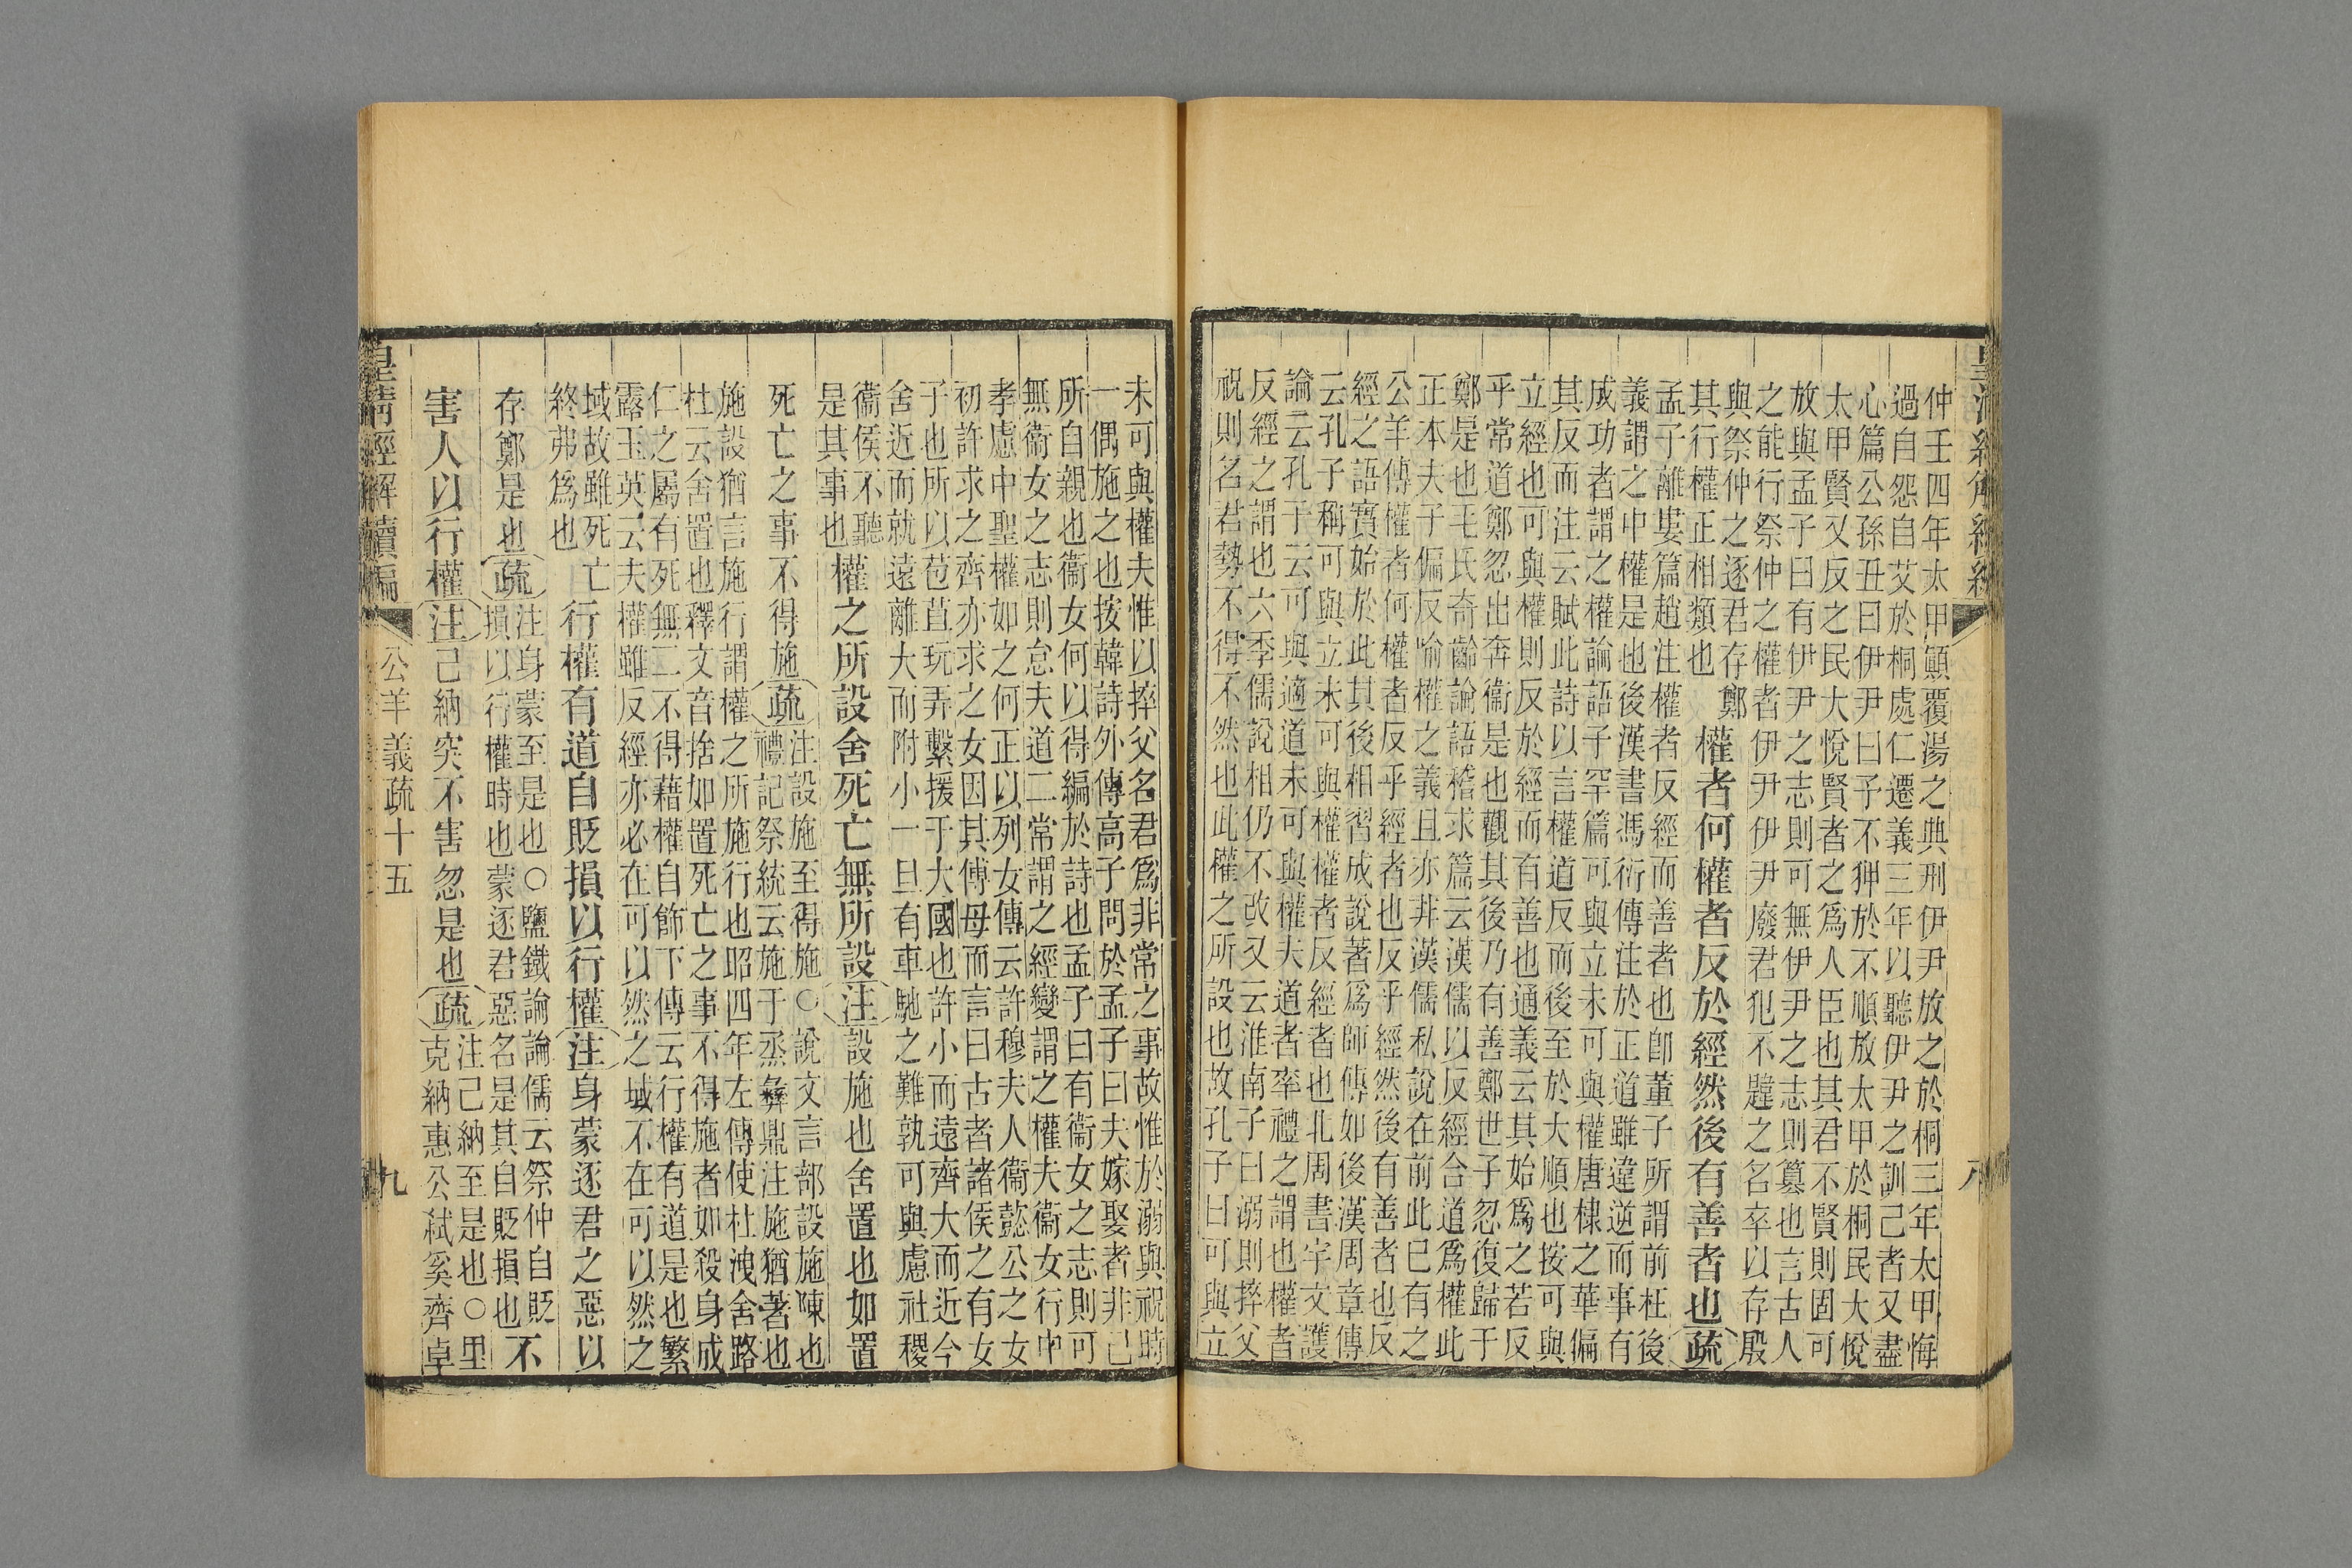 仲壬四年太甲顛覆湯之典刑伊尹放之於桐三年太甲悔
過自怨自艾於桐處仁遷義三年以聽伊尹之訓己者又盡
心篇公孫丑曰伊尹曰予不狎於不順放太甲於桐民大悅
太甲賢又反之民大悅賢者之爲人臣也其君不賢則固可
放與孟子曰有伊尹之志則可無伊尹之志則篡也言古人
之能行祭仲之權者伊尹伊尹廢君犯不韙之名卒以存殷
與祭仲之逐君存鄭
其行權正相類也
權者何權者反於經然後有善者也疏
孟子離婁篇趙注權者反經而善者也卽董子所謂前枉後
義謂之中權是也後漢書馮衍傳注於正道雖違逆而事有
成功者謂之權論語子罕篇可與立未可與權唐棣之華偏
其反而注云賦此詩以言權道反而後至於大順也按可與
立經也可與權則反於經而有善也通義云其始爲之若反
乎常道鄭忽出奔衞是也觀其後乃有善鄭世子忽復歸于
鄭是也毛氏奇齡論語稽求篇云漢儒以反經合道爲權此
正本夫子偏反喻權之義且亦非漢儒私說在前此已有之
公羊傳權者何權者反乎經者也反乎經然後有善者也反
經之語實始於此其後相習成說著爲師傳如後漢周章傳
云孔子稱可與立未可與權權者反經者也北周書宇文護
論云孔子云可與適道未可與權夫道者率禮之謂也權者
反經之謂也六季儒說相仍不改又云淮南子曰溺則捽父
祝則名君勢不得不然也此權之所設也故孔子曰可與立
未可與權夫惟以捽父名君爲非常之事故惟於溺與祝時
一偶施之也按韓詩外傳高子問於孟子曰夫嫁娶者非己
所自親也衞女何以得編於詩也孟子曰有衞女之志則可
無衞女之志則怠夫道二常謂之經變謂之權夫衞女行中
孝慮中聖權如之何正以列女傳云許穆夫人衞懿公之女
初許求之齊亦求之女因其傅母而言曰古者諸侯之有女
子也所以苞苴玩弄繫援于大國也許小而遠齊大而近今
舍近而就遠離大而附小一旦有車馳之難孰可與慮社稷
衞侯不聽
是其事也
權之所設舍死亡無所設注設施也舍置也如置
死亡之事不得施疏
注設施至得施○說文言部設施陳也
禮記祭統云施于烝彝鼎注施猶著也
施設猶言施行謂權之所施行也昭四年左傳使杜洩舍路
杜云舍置也釋文音捨如置死亡之事不得施者如殺身成
仁之屬有死無二不得藉權自飾下傳云行權有道是也繁
露玉英云夫權雖反經亦必在可以然之域不在可以然之
域故雖死亡
終弗爲也
行權有道自貶損以行權注身蒙逐君之惡以
存鄭是也疏
注身蒙至是也○鹽鐵論論儒云祭仲自貶
損以行權時也蒙逐君惡名是其自貶損也
不
害人以行權注己納突不害忽是也疏
注己納至是也○里
克納惠公弒奚齊卓
皇清經解續編
公羊義疏十五
九